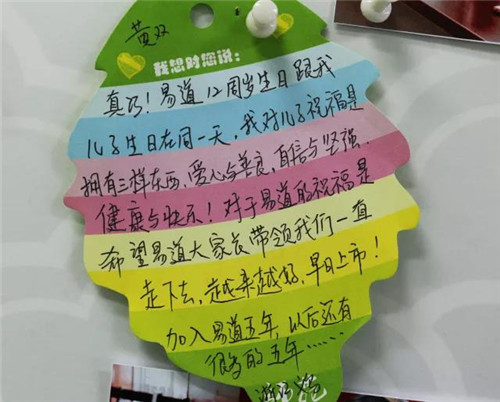 黄双
我想对您说：
真巧！易道12周岁生日跟我
儿子生日在同一天，我对儿子祝福是
拥有三样东西，爱心与善良，自信与坚强、
健康与快乐！对于易道的祝福是
希望易道大家长带领我们一直
走下去，越来越好，早日上市！
加入易道五年，以后还有
很多的五年……